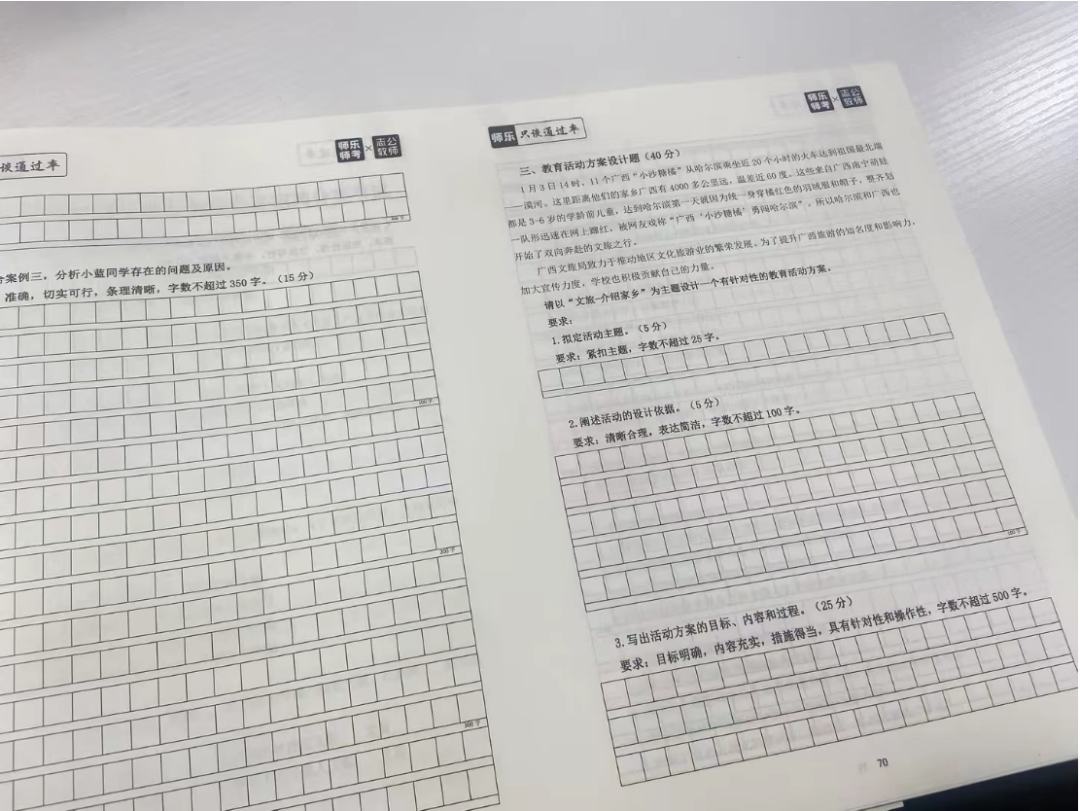 谈通过率
师乐
师考
×
志公
教师
案例三，分析小蓝同学存在的问题及原因。
准确，切实可行，条理清晰，字数不超过350字。（15分）
200字
300字
师乐 只谈通过率
师乐
师考
×
志公
教师
三、教育活动方案设计题（40分）
1月3日14时，11个广西“小沙糖橘”从哈尔滨乘坐近20个小时的火车达到祖国最北端
——漠河。这里距离他们的家乡广西有4000多公里远，温差近60度。这些来自广西南宁萌娃
都是3-6岁的学龄前儿童，达到哈尔滨第一天就因为统一身穿橘红色的羽绒服和帽子，整齐划
一队形迅速在网上蹿红，被网友戏称“广西‘小沙糖橘’勇闯哈尔滨”。所以哈尔滨和广西也
开始了双向奔赴的文旅之行。
广西文旅局致力于推动地区文化旅游业的繁荣发展。为了提升广西旅游的知名度和影响力，
加大宣传力度，学校也积极贡献自己的力量。
请以“文旅-介绍家乡”为主题设计一个有针对性的教育活动方案。
要求：
1.拟定活动主题。（5分）
要求：紧扣主题，字数不超过25字。
2.阐述活动的设计依据。（5分）
要求：清晰合理，表达简洁，字数不超过100字。
100字
3.写出活动方案的目标、内容和过程。（25分）
要求：目标明确，内容充实，措施得当，具有针对性和操作性，字数不超过500字。
70